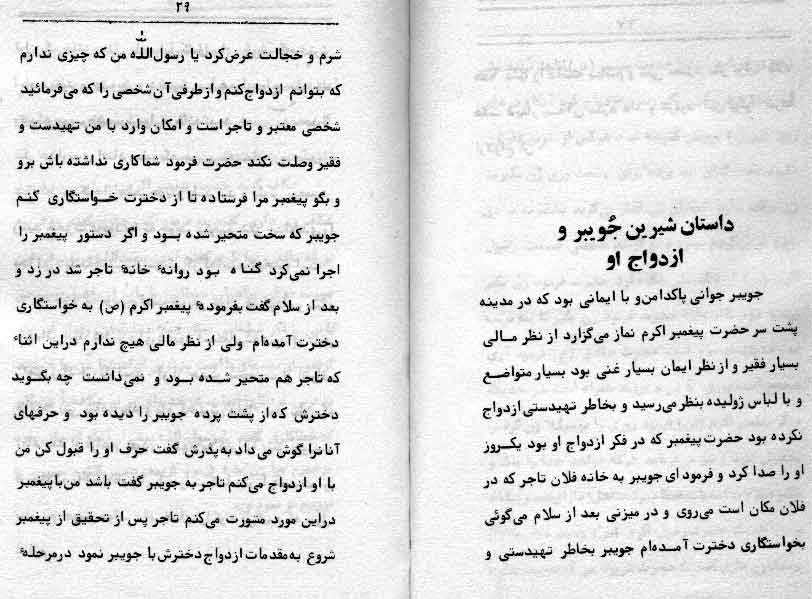 داستان شیرین جُویبر و
ازدواج او
جویبر جوانی پاکدامن و با ایمانی بود که در مدینه
پشت سر حضرت پیغمبر اکرم نماز می‌گزارد از نظر مالی
بسیار فقیر و از نظر ایمان بسیار غنی بود بسیار متواضع
و با لباس ژولیده بنظر می‌رسید و بخاطر تهیدستی ازدواج
نکرده بود حضرت پیغمبر که در فکر ازدواج او بود یکروز
او را صدا کرد و فرمود ای جویبر به خانه فلان تاجر که در
فلان مکان است می‌روی و در میزنی بعد از سلام می‌گوئی
بخواستگاری دخترت آمده‌ام جویبر بخاطر تهیدستی و
۲۹
شرم و خجالت عرض کرد یا رسول‌الله من که چیزی ندارم
که بتوانم ازدواج کنم و از طرفی آن شخصی را که می‌فرمائید
شخصی معتبر و تاجر است و امکان وارد با من تهیدست و
فقیر وصلت نکند حضرت فرمود شما کاری نداشته باش برو
و بگو پیغمبر مرا فرستاده تا از دخترت خواستگاری کنم
جویبر که سخت متحیر شده بود و اگر دستور پیغمبر را
اجرا نمی‌کرد گناه بود روانهٔ خانهٔ تاجر شد در زد و
بعد از سلام گفت بفرمودهٔ پیغمبر اکرم (ص) به خواستگاری
دخترت آمده‌ام ولی از نظر مالی هیچ ندارم در این اثناء
که تاجر هم متحیر شده بود و نمی‌دانست چه بگوید
دخترش که از پشت پرده جویبر را دیده بود و حرفهای
آنانرا گوش می‌داد به پدرش گفت حرف او را قبول کن من
با او ازدواج می‌کنم تاجر به جویبر گفت باشد من با پیغمبر
در این مورد مشورت می‌کنم تاجر پس از تحقیق از پیغمبر
شروع به مقدمات ازدواج دخترش با جویبر نمود در مرحلهٔ